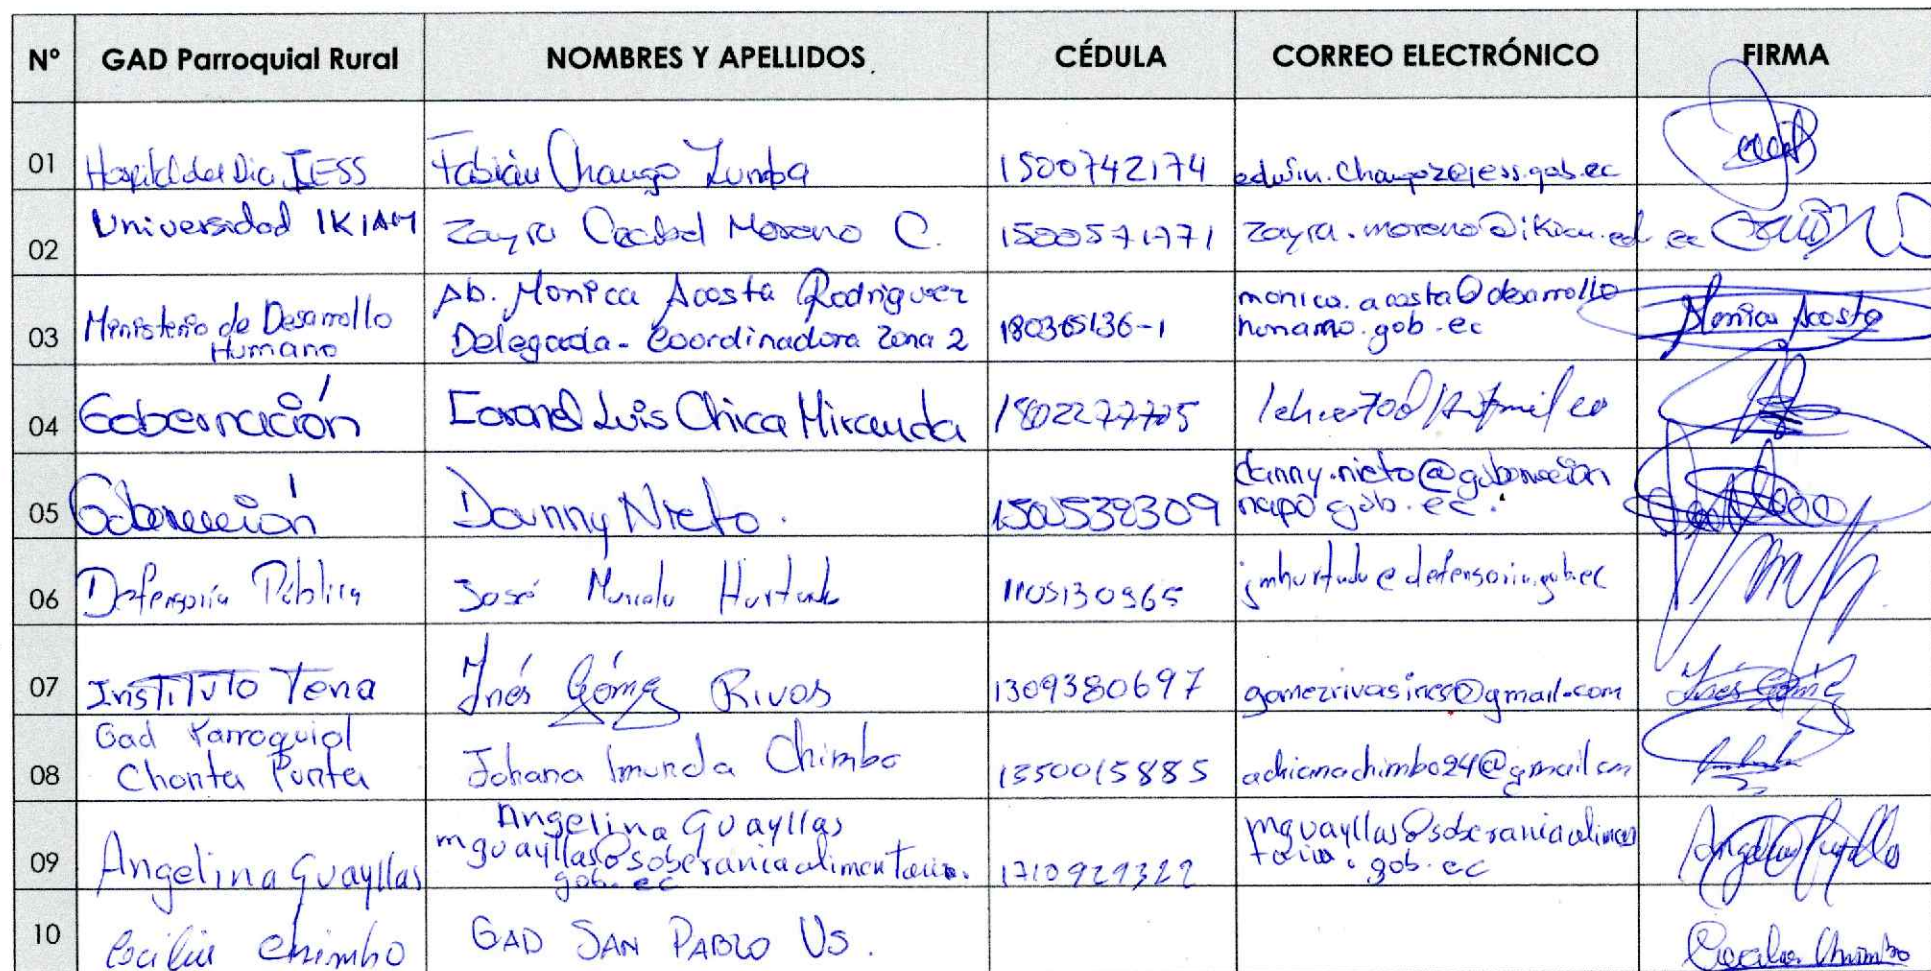 Nº GAD Parroquial Rural NOMBRES Y APELLIDOS CÉDULA CORREO ELECTRÓNICO FIRMA
01 Hospital del Dia IESS Fabián Chango Zumba 1500742174 edwin.changoz@iess.gob.ec
02 Universidad IKIAM Zayra Moreno C. zayra.moreno@ikiam.ed ec
03 Ministerio de Desarrollo
Humano
Ab. Monica Acosta Rodriguez
Delegada - Coordinadora Zona 2
180365136-1
monica.acosta@desarrollo
humano.gob.ec
Monica Acosta
04 Gobernación Luis Chica Miranda
05 Gobernación Danny Nieto. 1500538309
danny.nieto@gobernación
napo gob.ec.
06 Defensoría Pública José Hurtado 1105130965 jmhurtado@defensoria.gob.ec
07 Instituto Tena Inés Gómez Rivas 1309380697 gomezrivasines@gmail.com Inés Gómez
08 Gad Parroquial
Chonta Punta
Johana Chimbo 1550015885 adrianachimbo24@gmail.com
09 Angelina Guayllas
Angelina Guayllas
mguayllas@soberaniaalimentaria.
gob.ec
1710929322
mguayllas@soberaniaalimen
taria.gob.ec
10 Cecilia Chimbo GAD SAN PABLO US. Cecilia Chimbo